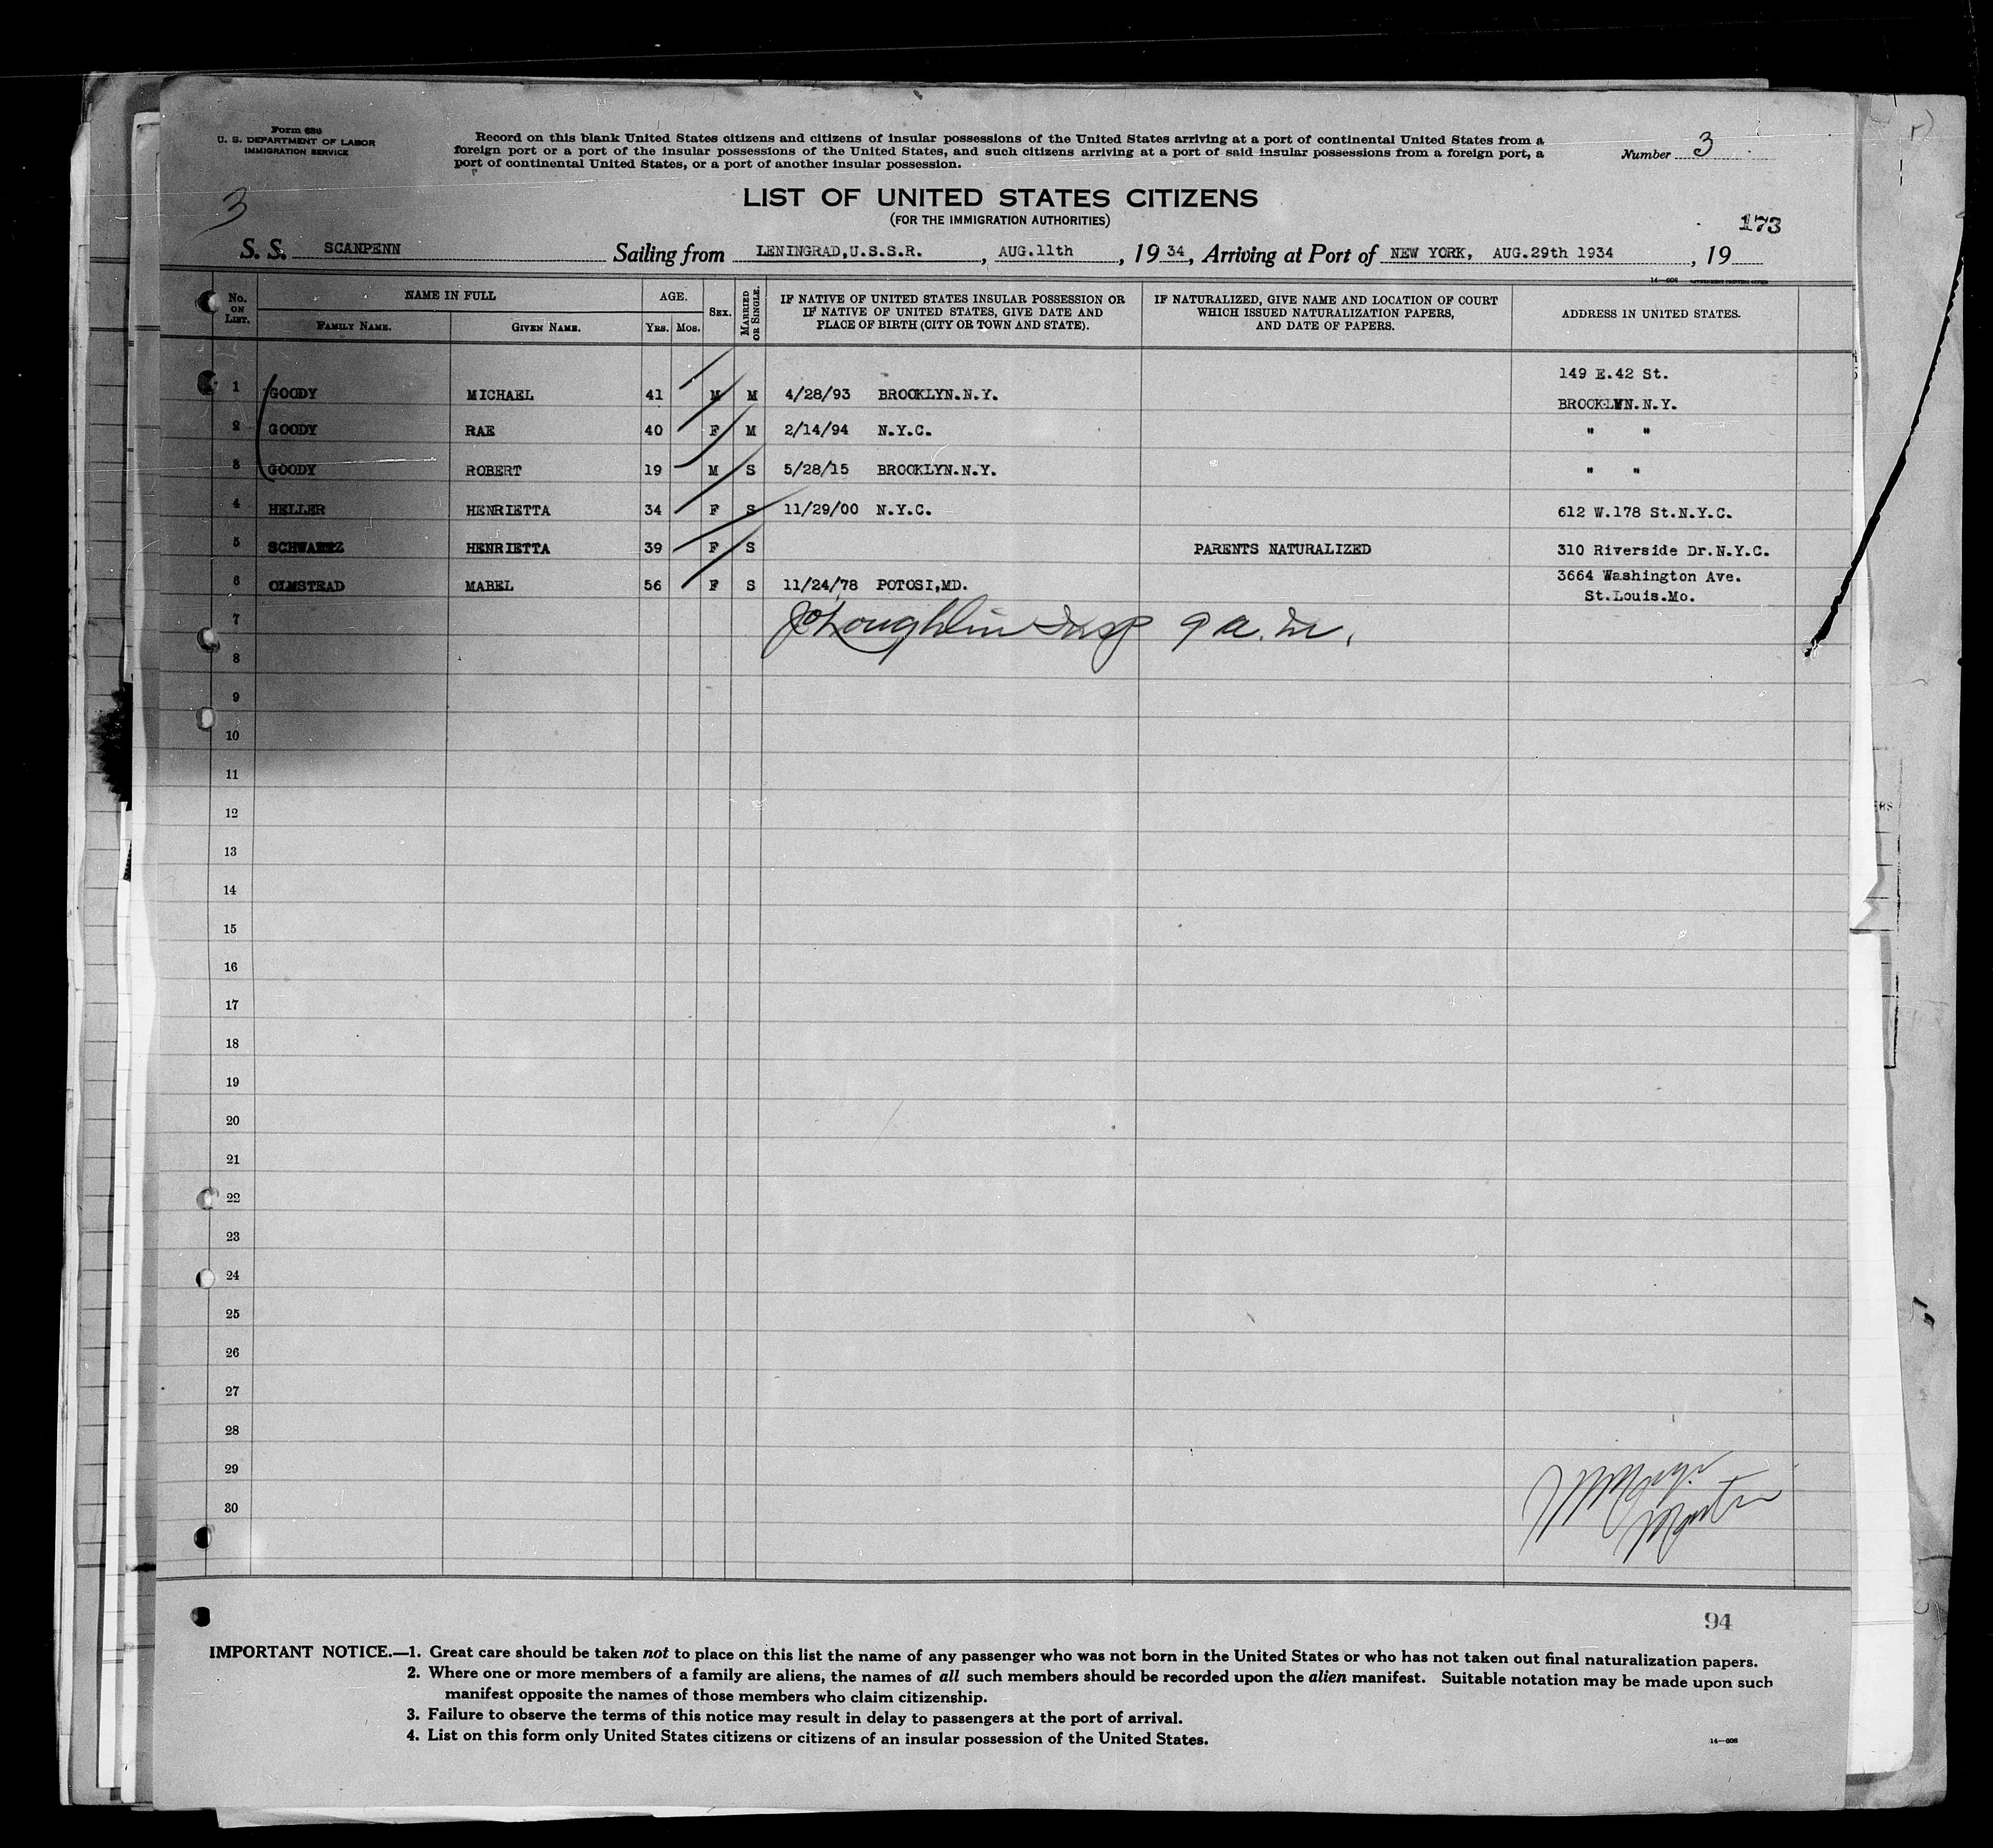 Form 630
U. S. DEPARTMENT OF LABOR
IMMIGRATION SERVICE
Record on this blank United States citizens and citizens of insular possessions of the United States arriving at a port of continental United States from a
foreign port or a port of the insular possessions of the United States, and such citizens arriving at a port of said insular possessions from a foreign port, a
port of continental United States, or a port of another insular possession.
Number 3
3
LIST OF UNITED STATES CITIZENS
(FOR THE IMMIGRATION AUTHORITIES)
173
S. S. SCANPENN Sailing from LENINGRAD,U.S.S.R. , AUG.11th , 19 34, Arriving at Port of NEW YORK, AUG.29th 1934 , 19
14—608
No. ON LIST. NAME IN FULL AGE. SEX. MARRIED OR SINGLE. IF NATIVE OF UNITED STATES INSULAR POSSESSION OR IF NATIVE OF UNITED STATES, GIVE DATE AND PLACE OF BIRTH (CITY OR TOWN AND STATE). IF NATURALIZED, GIVE NAME AND LOCATION OF COURT WHICH ISSUED NATURALIZATION PAPERS, AND DATE OF PAPERS. ADDRESS IN UNITED STATES.
FAMILY NAME. GIVEN NAME. YRS. MOS.
149 E.42 St.
1 GOODY MICHAEL 41 M M 4/28/93 BROOKLYN.N.Y. BROOKLYN.N.Y.
2 GOODY RAE 40 F M 2/14/94 N.Y.C. " "
3 GOODY ROBERT 19 M S 5/28/15 BROOKLYN.N.Y. " "
4 HELLER HENRIETTA 34 F S 11/29/00 N.Y.C. 612 W.178 St.N.Y.C.
5 SCHWARTZ HENRIETTA 39 F S PARENTS NATURALIZED 310 Riverside Dr.N.Y.C.
6 OLMSTEAD MABEL 56 F S 11/24/78 POTOSI,MD. 3664 Washington Ave.
St.Louis.Mo.
7 Loughlin Insp 9 a.m.
8
9
10
11
12
13
14
15
16
17
18
19
20
21
22
23
24
25
26
27
28
29
30
94
IMPORTANT NOTICE.—1. Great care should be taken not to place on this list the name of any passenger who was not born in the United States or who has not taken out final naturalization papers.
2. Where one or more members of a family are aliens, the names of all such members should be recorded upon the alien manifest. Suitable notation may be made upon such
manifest opposite the names of those members who claim citizenship.
3. Failure to observe the terms of this notice may result in delay to passengers at the port of arrival.
4. List on this form only United States citizens or citizens of an insular possession of the United States.
14—608